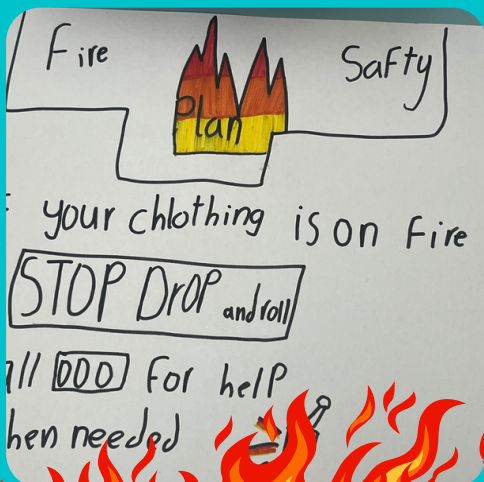 Fire Plan Safty
your chlothing is on Fire
STOP DrOP and roll
all 000 for help
hen needed